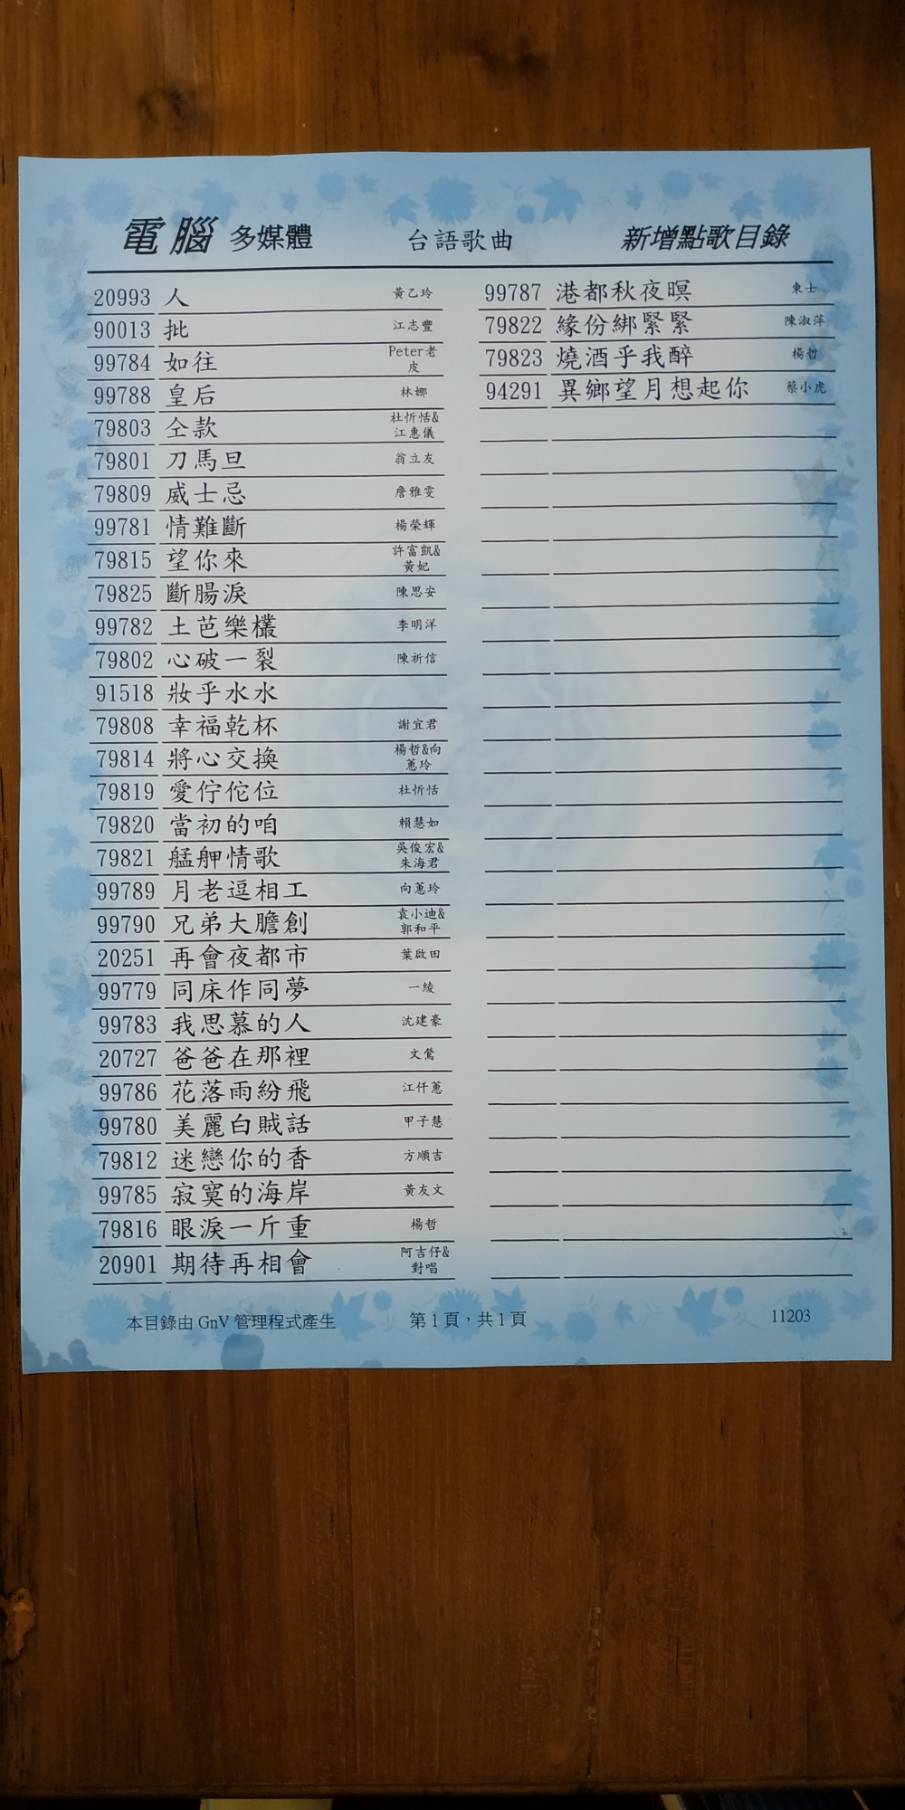 電腦 多媒體 台語歌曲 新增點歌目錄
20993 人 黃乙玲
90013 批 江志豐
99784 如往 Peter老皮
99788 皇后 林娜
79803 仝款 杜忻恬&江惠儀
79801 刀馬旦 翁立友
79809 威士忌 詹雅雯
99781 情難斷 楊榮輝
79815 望你來 許富凱&黃妃
79825 斷腸淚 陳思安
99782 土芭樂欉 李明洋
79802 心破一裂 陳祈信
91518 妝乎水水
79808 幸福乾杯 謝宜君
79814 將心交換 楊哲&向蕙玲
79819 愛佇佗位 杜忻恬
79820 當初的咱 賴慧如
79821 艋舺情歌 吳俊宏&朱海君
99789 月老逗相工 向蕙玲
99790 兄弟大膽創 袁小迪&郭和平
20251 再會夜都市 葉啟田
99779 同床作同夢 一綾
99783 我思慕的人 沈建豪
20727 爸爸在那裡 文鶯
99786 花落雨紛飛 江仟蕙
99780 美麗白賊話 甲子慧
79812 迷戀你的香 方順吉
99785 寂寞的海岸 黃友文
79816 眼淚一斤重 楊哲
20901 期待再相會 阿吉仔&對唱
99787 港都秋夜暝 東士
79822 緣份綁緊緊 陳淑萍
79823 燒酒乎我醉 楊哲
94291 異鄉望月想起你 蔡小虎
本目錄由 GnV 管理程式產生 第 1 頁，共 1 頁 11203